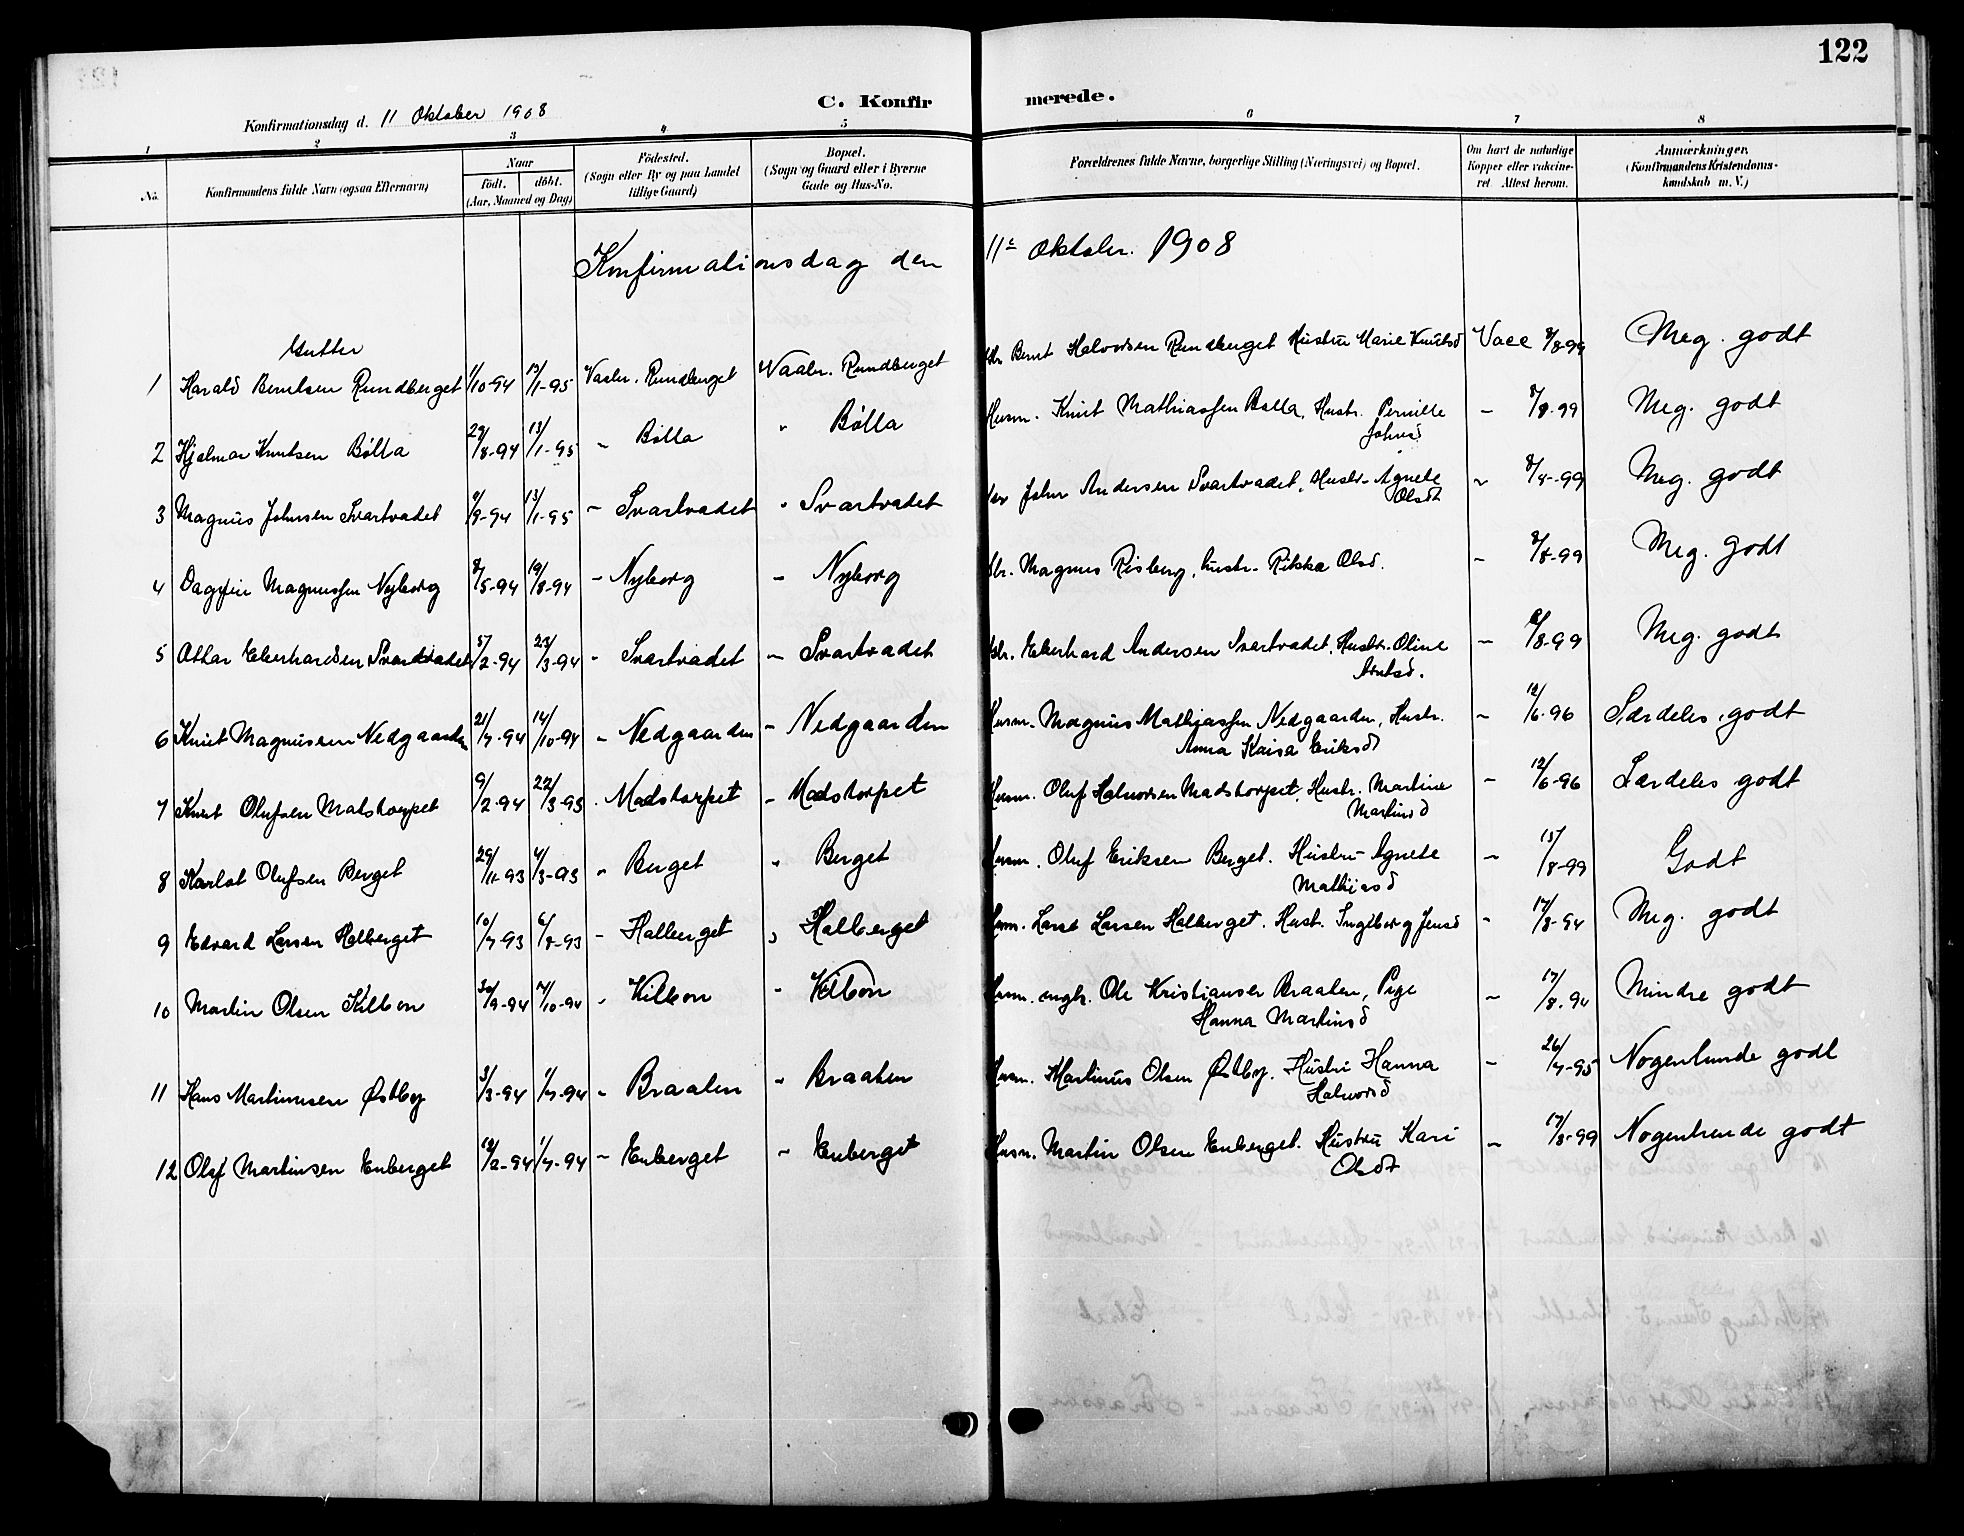 122
C. Konfirmerede.
Konfirmationsdag d. 11 Oktober 1908
1 2 3 4 5 6 7 8
No. Konfirmandens fulde Navn (ogsaa Efternavn) Naar født. døbt. (Aar, Maaned og Dag) Födested. (Sogn eller By og paa Landet tillige Gaard) Bopæl. (Sogn og Gaard eller i Byerne Gade og Hus-No. Forældrenes fulde Navne, borgerlige Stilling (Næringsvei) og Bopæl. Om havt de naturlige Kopper eller vakcineret Attest herom. Anmærkninger. (Konfirmandens Kristendomskundskab m. V.)
Konfirmationsdag den 11te Oktober. 1908
Gutter
1 Harald Berntsen Rundberget 1/10-94 13/1-95 Vaaler. Rundberget Vaaler. Rundberget Bernt Halvorsen Rundberget Hustru Marie Knutsd Vacc 8/8-99 Meg. godt
2 Hjalmar Knutsen Bølla 29/8-94 13/1-95 - Bølla " Bølla Husm. Knut Mathiassen Bølla, Hustr. Pernille Johnsd - 8/8-99 Meg. godt
3 Magnus Johnsen Svartvadet 9/9-94 13/1-95 - Svartvadet " Svartvadet John Andersen Svartvadet, Hustr. Agnete Olsdt - 8/8-99 Meg. godt
4 Dagfin Magnussen Nyborg 8/5-94 19/8-94 - Nyborg - Nyborg Magnus Risberg, hustr. Rikka Olsd. - 8/8-99 Meg. godt
5 Othar Eberhardsen Svartvadet 5/2-94 23/3-94 - Svartvadet - Svartvadet Eberhard Andersen Svartvadet, Hustr. Oline Arntsd. - 8/8-99 Meg. godt
6 Knut Magnussen Nedgaarden 21/7-94 14/10-94 - Nedgaarden - Nedgaarden Husm. Magnus Mathiassen Nedgaarden, Hustr. Anna Kaisa Eriksd - 12/6-96 Særdeles godt
7 Knut Olufsen Madstorpet 9/2-94 22/3-93 - Madstorpet - Madstorpet Husm. Oluf Halvorsen Madstorpet, Hustr. Martine Martinsd - 12/6-96 Særdeles godt
8 Karlot Olufsen Berget 29/11-93 4/3-93 - Berget " Berget Husm. Oluf Eriksen Berget. Hustru Agnete Mathiasd - 15/8-99 Godt
9 Edvard Larsen Halberget 10/7-93 6/8-93 - Halberget " Halberget Husm. Lars Larsen Halberget. Hust. Ingeborg Jensd - 17/8-94 Meg. godt
10 Martin Olsen Kilbon 30/9-94 14/10-94 - Kilbon - Kilbon Husm. ungk. Ole Kristiansen Braaten, Pige Hanna Martinsd - 17/8-94 Mindre godt
11 Hans Martinusen Østby 3/3-94 1/7-94 - Braaten - Braaten Husm. Martinus Olsen Østby. Hustru Hanna Halvorsd - 26/7-95 Nogenlunde godt
12 Olaf Martinsen Enberget 18/2-94 1/7-94 - Enberget - Enberget Husm. Martin Olsen Enberget. Hustru Kari Olsdt - 17/8-99 Nogenlunde godt